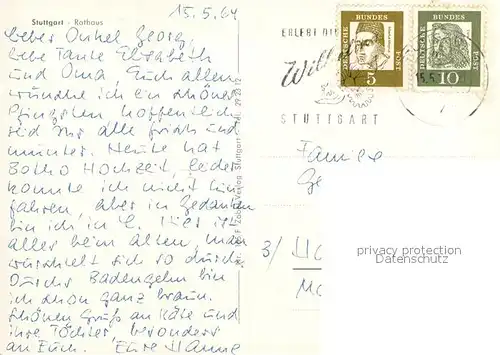 15.5.64
Stuttgart - Rathaus
Lieber Onkel Georg,
liebe Tante Elisabeth
und Oma, Euch allen
wünsche ich ein schönes
Pfingsten, hoffentlich
seid Ihr alle frisch und
munter. Heute hat
Botho Hochzeit, leider
konnte ich nicht hin-
fahren, aber in Gedanken
bin ich in C. Hier ist
alles beim alten, man
wurschtelt sich so durch.
Durchs Badengehn bin
ich schon ganz braun.
Schönen Gruß an Käte und
ihre Töchter, besonders
an Euch. Eure Hanne
Verlag Stuttgart
ERLEBT DIE
STUTTGART
DEUTSCHE
BUNDES
5
DEUTSCHE
BUNDES
10
15.5.
Familie
Ge
3/
privacy protection
Datenschutz